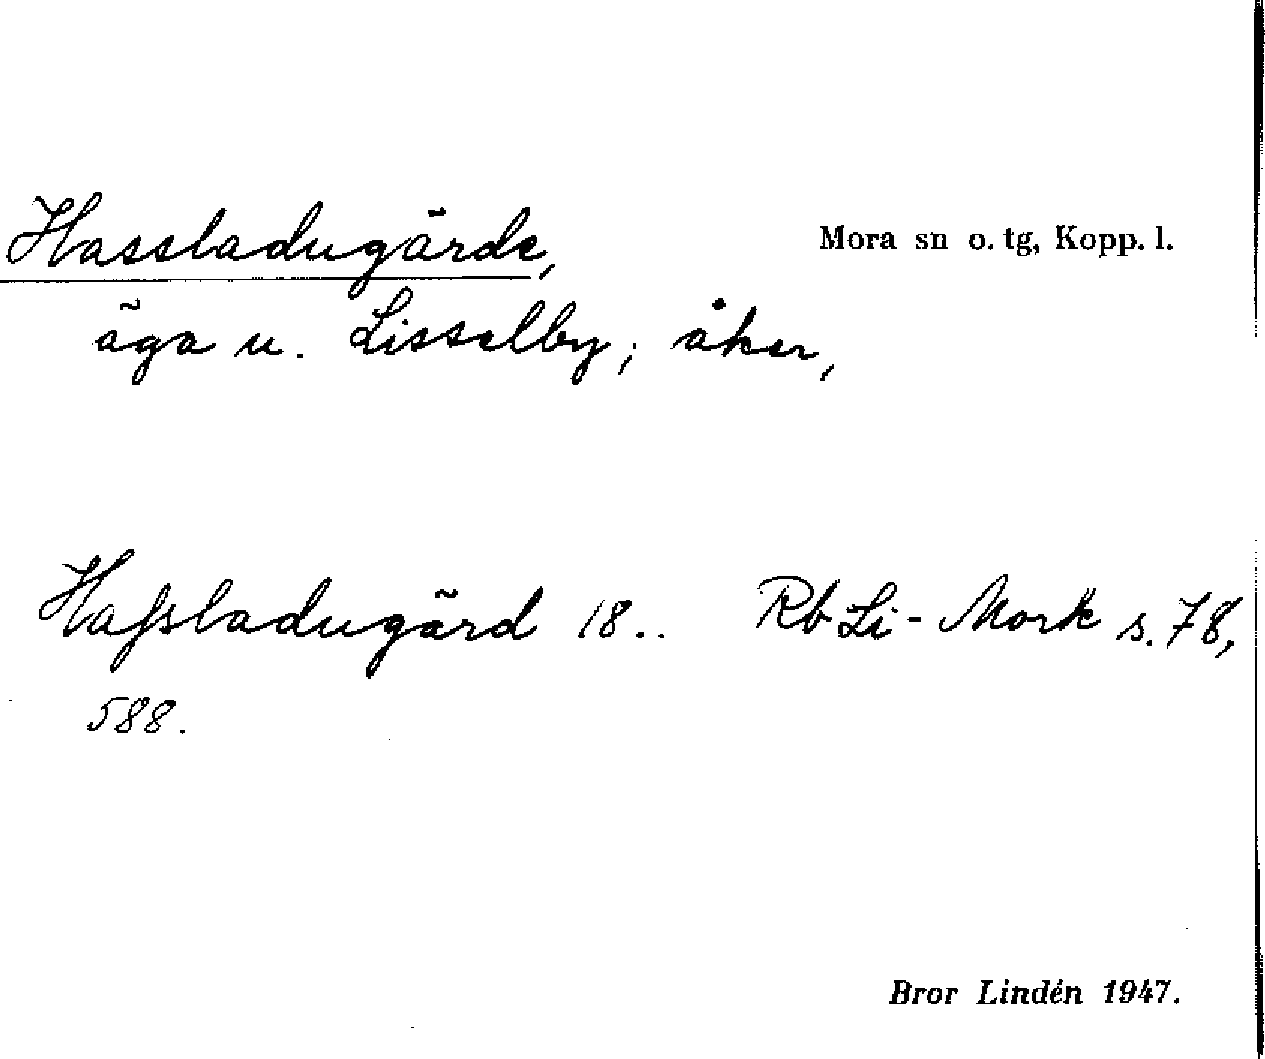 Hassladugärde,
Mora sn o. tg, Kopp. l.
äga u. Lisselby; åker,
Haſsladugärd 18.. Rb Li-Mork s. 78,
588.
Bror Lindén 1947.